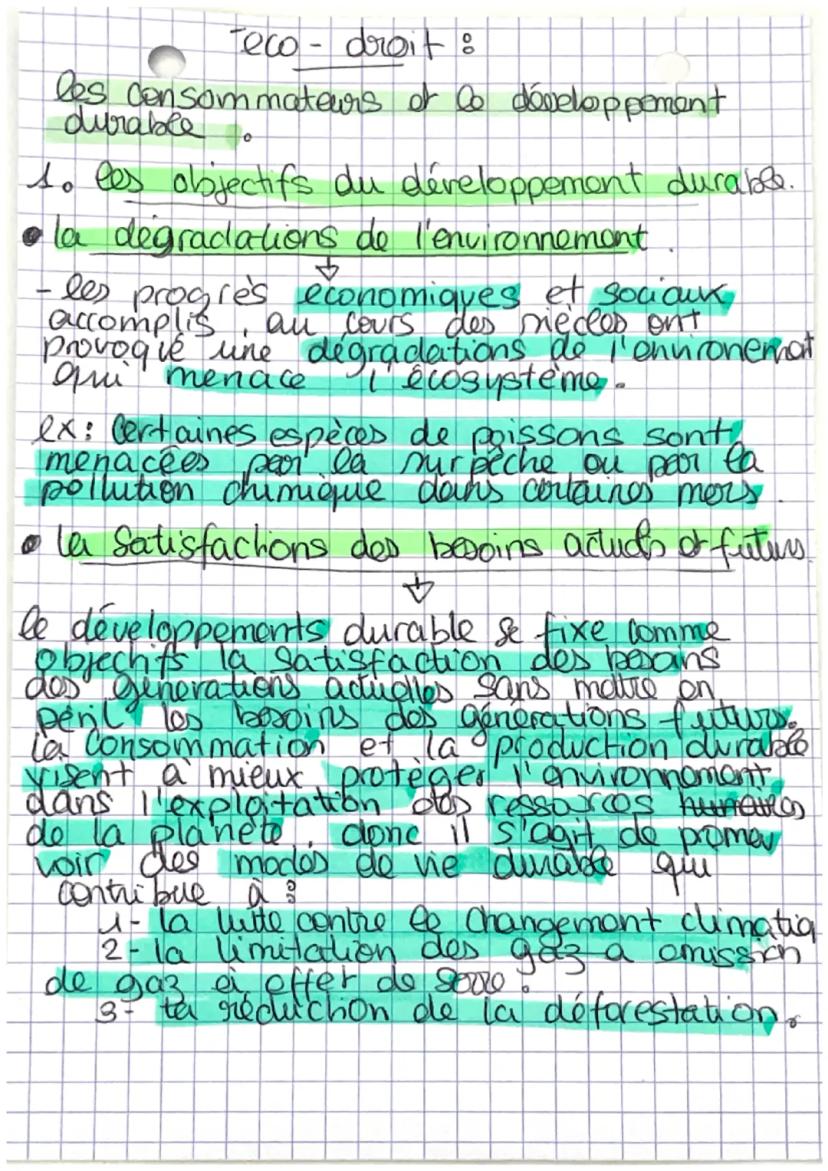 eco - droit :
les consommateurs et le développement
durable.
1. les objectifs du développement durable.
• la dégradations de l'environnement.
- les progrès économiques et sociaux,
accomplis, au cours des siècles ont
provoqué une dégradations de l'environemat
qui menace l'écosystème.
ex: Certaines espèces de poissons sont,
menacées par la surpêche ou par la
pollution chimique dans certaines mers.
• la Satisfactions des besoins actuels et futurs.
le développements durable se fixe comme
objectifs la satisfaction des besoins
des générations actuelles sans mettre en
péril les besoins des générations futurs.
la consommation et la production durable
visent à mieux protéger l'environnement,
dans l'exploitation des ressources
de la planète, donc il s'agit de promou
voir des modes de vie durable qui
contribue à :
1- la lutte contre le changement climatiq
2- la limitation des gaz a émission
de gaz à effer de serre.
3- la réduction de la déforestation.